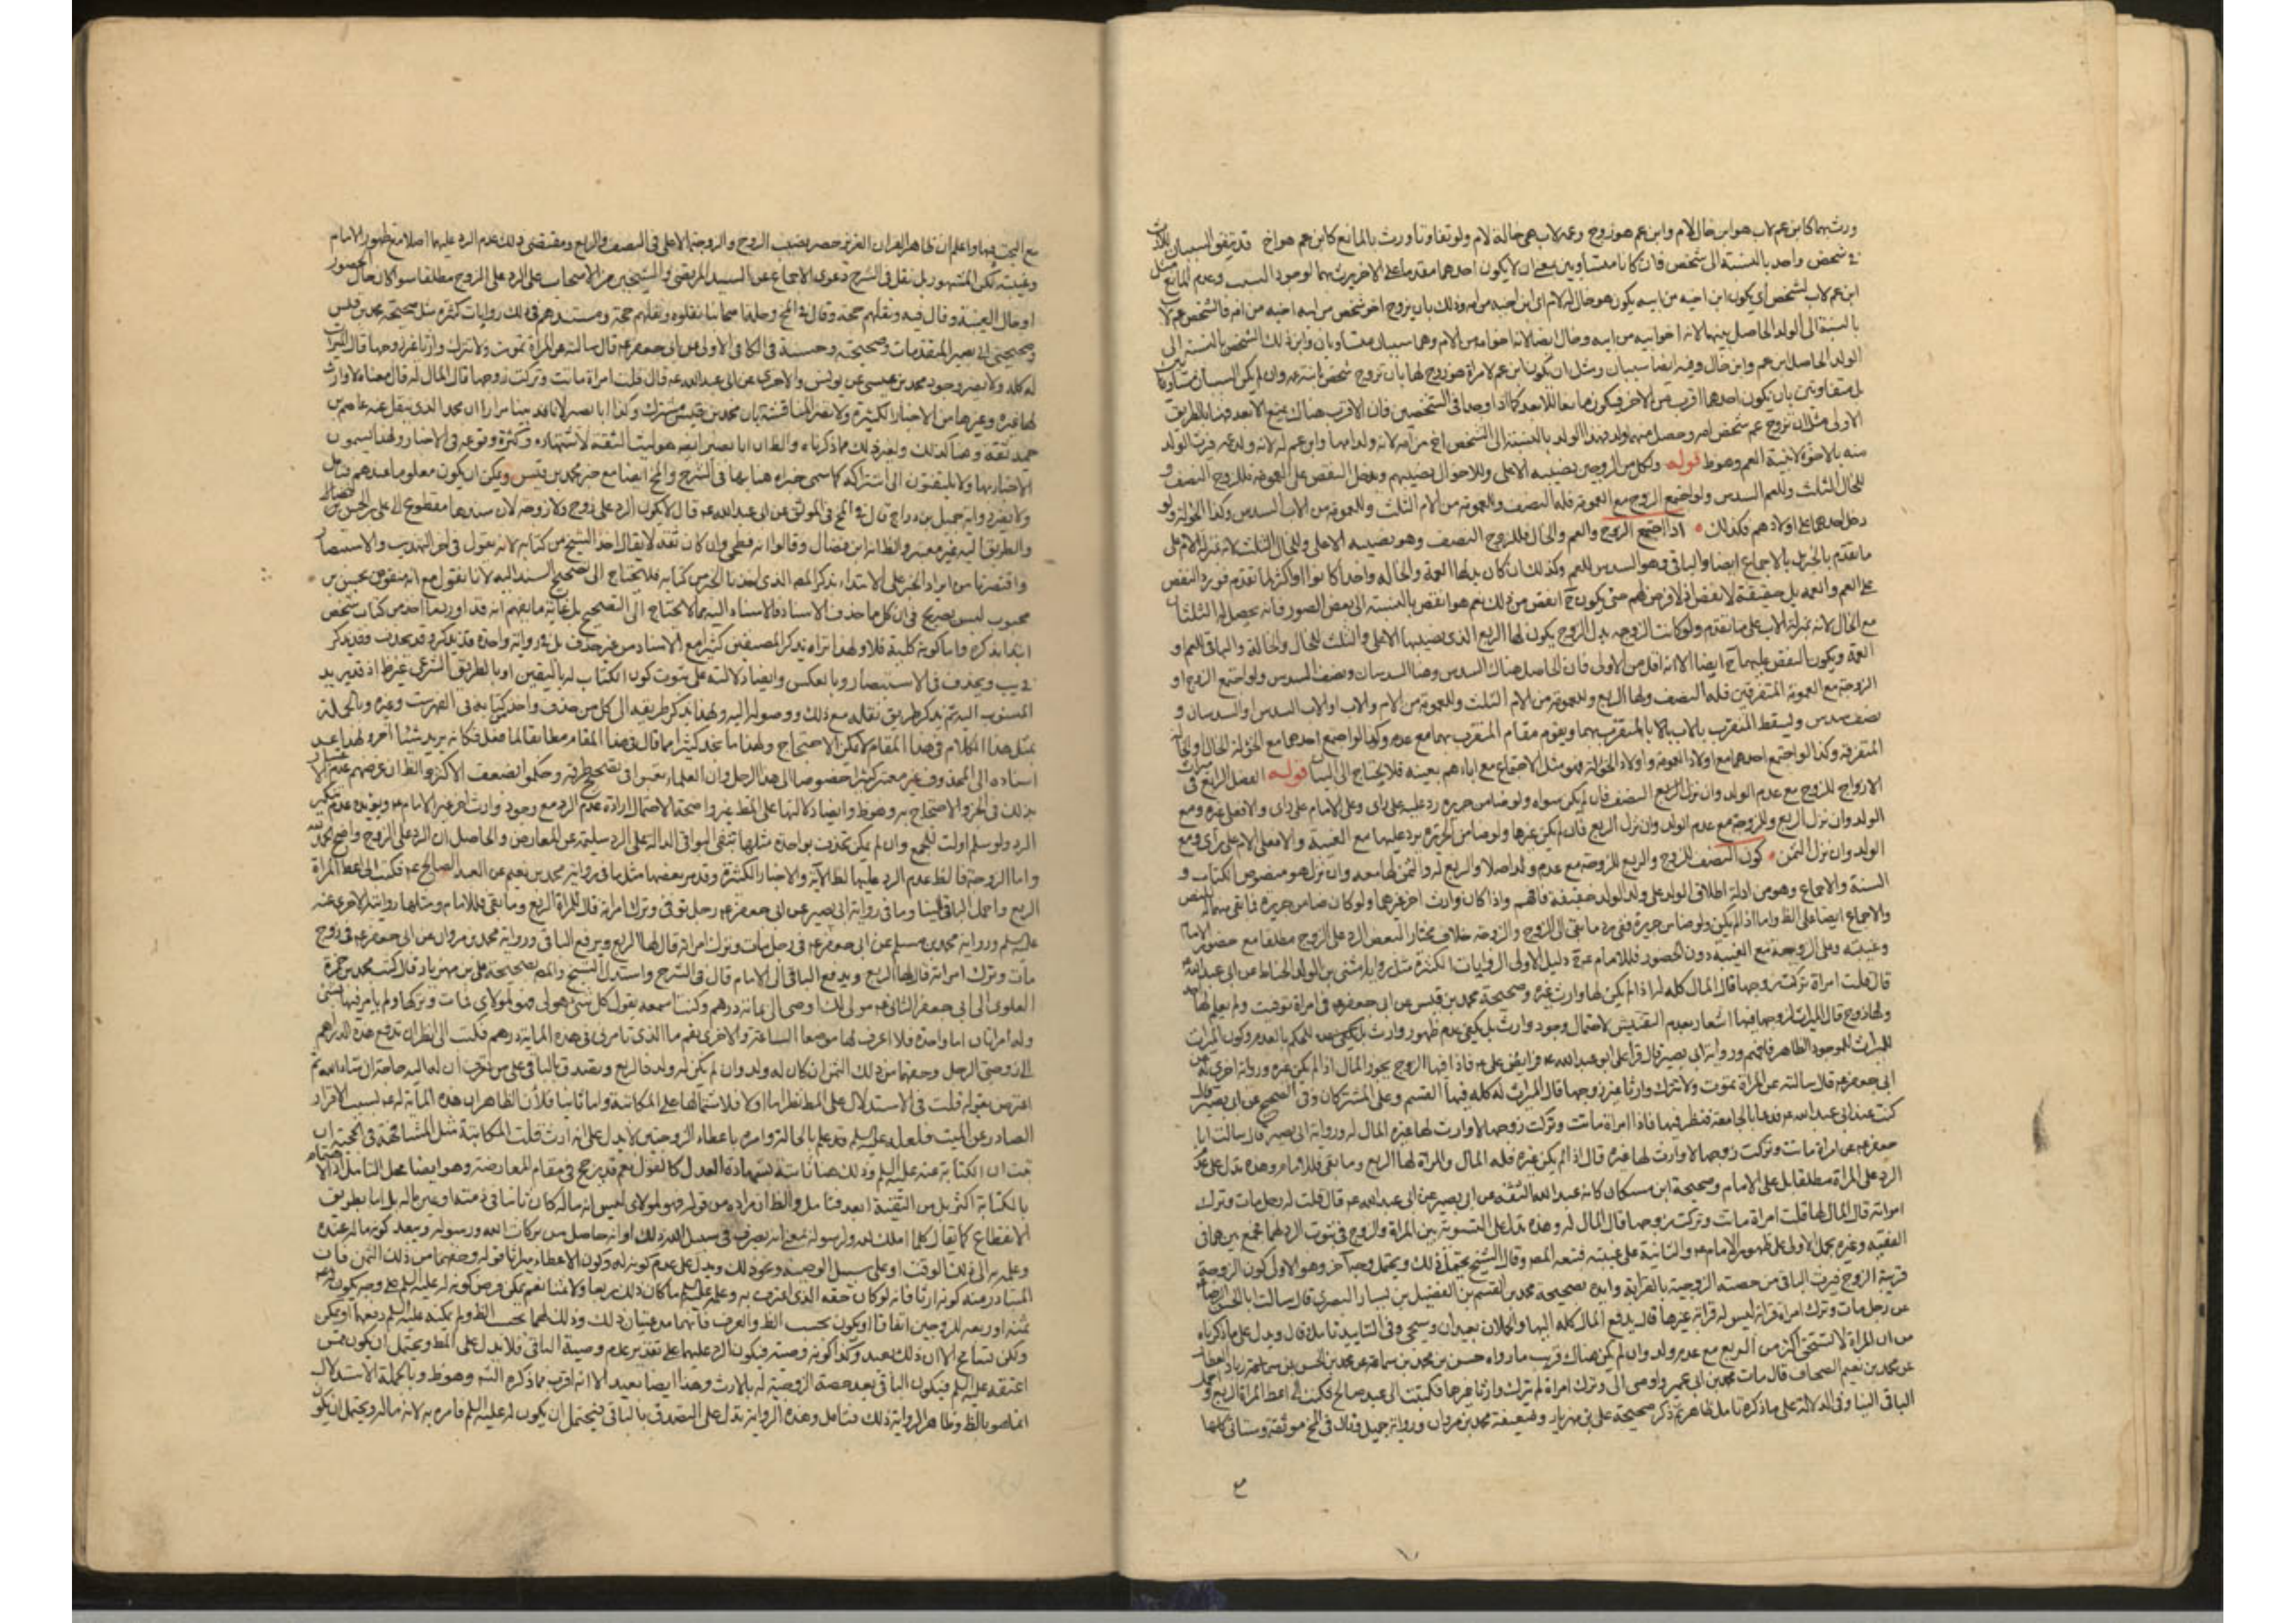 ورث بهما كابن عم لاب هو ابن خال لام وابن عم هو زوج وعمه لاب هى خالة لام ولو تفاوتا ورث بالمانع كابن عم هو اخ قد يتفق السببان للارث
فى شخص واحد بالنسبة الى شخص فان كانا متساويين بمعنى ان لا يكون احدهما مقدما على الاخر يرث بهما لوجود السبب وعدم المانع مثل
ابن عم لاب لشخص اى يكون ابن اخيه من ابيه يكون هو خال له لام اى ابن اخيه من امه وذلك بان يزوج اخو شخص من ابيه اخته من امه فالشخص عم لاب
بالنسبة الى الولد الحاصل بينهما لانه اخو ابيه من ابيه وخال ايضا لانه اخو امه من الام وهما سببان متساويان وابن ذلك الشخص بالنسبة الى
الولد الحاصل ابن عم وابن خال وفيه ايضا سببان ومثل ان يكون ابن عم لامراة هو زوج لها بان تزوج شخص بابنة عمه وان لم يكن السببان متساويين
بل متفاوتين بان يكون احدهما اقرب من الاخر فيكون مانعا للابعد كما اذا وجدا فى الشخصين فان الاقرب هناك يمنع الابعد فهنا بالطريق
الاولى مثل ان تزوج عم شخص امه وحصل منهما ولد فهذا الولد بالنسبة الى الشخص اخ من امه لانه ولد امها وابن عم له لانه ولد عمه فيرث الولد
منه بالاخوة لا بنية العم وهو ظ قوله ولكل من الزوجين نصيبه الاعلى وللاخوال نصيبهم ويدخل النقص على العمومة فللزوج النصف و
للخال الثلث وللعم السدس ولو اجتمع الزوج مع العمومة فله النصف وللعمومة من الام الثلث وللعمومة من الاب السدس وكذا الخؤلة ولو
دخل احدهما على اولادهم فكذلك اذا اجتمع الزوج والعم والخال فللزوج النصف وهو نصيبه الاعلى وللخال الثلث لانه بمنزلة الام على
ما تقدم بالخبر بل بالاجماع ايضا والباقى وهو السدس للعم وكذلك ان كان بدلهما العمة والخالة واحدا كانوا او اكثر لما تقدم فورد النقص
على العم والعمة بل حقيقة لا نقص اذ لا فرض لهم حتى يكون ح انقص من ذلك نعم هو انقص بالنسبة الى بعض الصور فانه يحصل له الثلثان
مع الخال لانه بمنزلة الاب على ما تقدم ولو كانت الزوجة بدل الزوج يكون لها الربع الذى نصيبها الاعلى والثلث للخال والخالة والباقى للعم او
العمة ويكون النقص عليهما ح ايضا الا انه اقل من الاولى فان الحاصل هناك السدس وهنا السدسان ونصف السدس ولو اجتمع الزوج او
الزوجة مع العمومة المتفرقين فله النصف ولها الربع وللعمومة من الام الثلث وللعمومة من الام والاب او للاب السدس او السدسان و
نصف سدس ويسقط المتقرب بالاب بالمتقرب بهما ويقوم مقام المتقرب بهما مع عدمه وكذا لو اجتمع احدهما مع الخؤلة الخال والخالة
المتفرقه وكذا لو اجتمع احدهما مع اولاد العمومة واولاد الخؤلة فهو مثل الاجتماع مع ابائهم بعينه فلا يحتاج الى البيان قوله الفصل الرابع فى ميراث
الازواج للزوج مع عدم الولد وان نزل النصف فان لم يكن سواه ولو ضامن جريرة رد عليه على راى وعلى الامام على راى والا فعلى غيره ومع
الولد وان نزل الربع وللزوجة مع عدم الولد وان نزل الربع فان لم يكن غيرها ولو ضامن الجريرة يرد عليها مع الغيبة والا فعلى الامام على راى ومع
الولد وان نزل الثمن كون النصف للزوج والربع للزوجة مع عدم ولد اصلا والربع له والثمن لها معه وان نزل هو منصوص الكتاب و
السنة والاجماع وهو من ادلة اطلاق الولد على ولد الولد حقيقة فافهم واذا كان وارث اخر غيرهما ولو كان ضامن جريرة فما بقى منهما له للنص
والاجماع ايضا على الظ واما اذا لم يكن ولو ضامن جريرة ففى رد ما بقى الى الزوج والزوجة خلاف مختار البعض الرد على الزوج مطلقا مع حضور الامام
وغيبته وعلى الزوجة مع الغيبة دون الحضور فللامام عم دليل الاولى الروايات الكثيرة مثل رواية مثنى بن الوليد الحناط عن ابى عبد الله عم
قال قلت امراة تركت زوجها قال المال كله له اذا لم يكن لها وارث غيره وصحيحة محمد بن قيس عن ابى جعفر عم فى امراة توفيت ولم يعلم لها احد
ولها زوج قال الميراث لزوجها فيها اشعار بعدم التفتيش لاحتمال وجود وارث بل يكفى عدم ظهور وارث للحكم بالعدم وكون الميراث
للوارث الموجود الظاهر فافهم ورواية ابى بصير قال قرا على ابو عبد الله عم فرائض على عم فاذا فيها الزوج يحوز المال اذا لم يكن غيره ورواية اخرى له عن
ابى جعفر عم قال سالته عن المراة تموت ولا تترك وارثا غير زوجها قال الميراث له كله فيها القسم وعلى المشتركان وفى الصحيح عن ابى بصير قال
كنت عند ابى عبد الله عم فدعا بالجامعة فنظر فيها فاذا امراة ماتت وتركت زوجها لا وارث لها غيره المال له ورواية ابى بصير قال سالت ابا
جعفر عم عن امراة ماتت وتركت زوجها لا وارث لها غيره قال اذا لم يكن غيره فله المال والمراة لها الربع وما بقى فللامام وهذه تدل على عدم
الرد على المراة مطلقا بل على الامام وصحيحة ابن مسكان كانه عبد الله الثقة عن ابى بصير عن ابى عبد الله عم قال قلت له رجل مات وترك
امراته قال المال لها قلت امراة ماتت وتركت زوجها قال المال له وهذه تدل على التسوية بين المراة والزوج فى ثبوت الرد لهما فجمع بينهما فى
الفقيه وغيره بحمل الاولى على ظهور الامام عم والثانية على غيبته فتبعه المص وقال الشيخ يحتمل ذلك ويحتمل وجها اخر وهو الاولى كون الزوجة
قريبة الزوج فيرث الباقى من حصته الزوجية بالقرابة وايده بصحيحة محمد بن القسم بن الفضيل بن يسار البصرى قال سالت ابا الحسن الرضا عم
عن رجل مات وترك امراة قرابة ليس له قرابة غيرها قال يدفع المال كله اليها والحملان بعيدان وسيجى وفى التاييد تامل قال ويدل على ما ذكرناه
من ان المراة لا تستحق اكثر من الربع مع عدم ولد وان لم يكن هناك قريب ما رواه حسن بن محمد بن سماعة عن محمد بن الحسن بن زياد العطار
عن محمد بن نعيم الصحاف قال مات محمد بن ابى عمير واوصى الى وترك امراة لم يترك وارثا غيرها فكتبت الى عبد صالح فكتب الى اعط المراة الربع واحمل
الباقى الينا وفى الدلالة على ما ذكره تامل ظاهر ثم ذكر صحيحة على بن مهزيار وضعيفة محمد بن مروان ورواية جميل وقال فى المخ موثقة وستاتى كلها
مع
مع البحث فيها واعلم ان ظاهر القران العزيز حصر نصيب الزوج والزوجة الاعلى فى النصف والربع ومقتضى ذلك عدم الرد عليهما اصلا مع ظهور الامام
وغيبته لكن المشهور بل نقل فى الشرح دعوى الاجماع عن السيد المرتضى والشيخين من الاصحاب على الرد على الزوج مطلقا سواء كان حال الحضور
او حال الغيبة وقال فيه ونقلهم حجة وقال فى المخ وجلة اصحابنا نقلوه ونقلهم حجة ومستندهم فى ذلك روايات كثيرة مثل صحيحة محمد بن قيس
وصحيحتى ابى بصير المتقدمات وصحيحته وحسنة فى الكافى الاولى عن ابى جعفر عم قال سالته عن المراة تموت ولا تترك وارثا غير زوجها قال الميراث
له كله ولا يضر وجود محمد بن عيسى عن يونس والاخرى عن ابى عبد الله عم قال قلت امراة ماتت وتركت زوجها قال المال له قال معناه لا وارث
لها غيره وغيرها من الاخبار الكثيرة ولا يضر المناقشة بان محمد بن قيس مشترك وكذا ابا بصير لانا قد بينا مرارا ان محمد الذى ينقل عنه عاصم بن
حميد ثقة وهنا كذلك ولغير ذلك مما ذكرناه والظ ان ابا بصير ايضا هو ليث الثقة لاشتهاره وكثرة وقوعه فى الاخبار ولهذا يسمون
الاخبار بها ولا يلتفتون الى اشتراكه كما سمى خبراه هنا بها فى الشرح والمخ ايضا مع خبر محمد بن قيس ويمكن ان يكون معلوما عندهم فتامل
ولا يضر رواية جميل بن دراج قال فى المخ فى الموثق عن ابى عبد الله عم قال لا يكون الرد على زوج ولا زوجة لان سندها مقطوع الى على بن الحسن بن فضال
والطريق اليه غير معتبر والظ انه ابن فضال وقالوا انه فطحى وان كان ثقة لا يقال اخذ الشيخ من كتابه لانه يقول فى اخر التهذيب والاستبصار
واقتصرنا من ايراد الخبر على الابتداء بذكر المص الذى اخذنا الخبر من كتابه فلا يحتاج الى تصحيح السند اليه لانا نقول مع انه منقوض بحسن بن
محبوب ليس بصريح فى ان كل ما حذف الاسناد فالاسناد اليه مما لا يحتاج الى التصحيح بل غاية ما يفهم انه قد اورد بما اخذ من كتاب شخص
ابتدا بذكره واما كونه كلية فلا ولهذا تراه يذكر المصنفين كثيرا مع الاسناد من غير حذف بل فى رواية واحدة قد يذكر وقد يحذف فقد يذكر
فى يب ويحذف فى الاستبصار وبالعكس وايضا دلالته على ثبوت كون الكتاب له باليقين او بالطريق الشرعى غير ظ اذ قد يريد
المنسوب اليه ثم يذكر طريق نقله مع ذلك ووصوله اليه ولهذا يذكر طريقه الى كل من حذف واخذ كتابه فى الفهرست وغيره وبالجملة
بمثل هذا الكلام فى هذا المقام لا يمكن الاحتجاج ولهذا ما نجد كثيرا مما قال فى هذا المقام مطابقا لما فعل فكانه يريد شيئا اخر ولهذا عد
اسناده الى المحذوف غير معتبر كثيرا خصوصا الى هذا الرجل وان العلماء تعبوا فى تصحيح طرقه وحكموا بضعف الاكثر والظ ان غرضهم عدم الاعتبار
بذلك فى الخبر والاحتجاج به وهو ظ وايضا دلالتها على المط غير واضحة لاحتمال ارادة عدم الرد مع وجود وارث اخر غير الامام عم ويؤيده عدم تنكير
الرد ولو سلم اولت للجمع وان لم يمكن تحذف بواحدة مثلها تنفى البواقى الدالة على الرد سليمة عن المعارض والحاصل ان الرد على الزوج واضح لله الحمد
واما الزوجة فالظ عدم الرد عليها لظ الاية والاخبار الكثيرة وقد مر بعضها مثل ما فى رواية محمد بن نعيم عن العبد الصالح عم فكتب الى اعط المراة
الربع واحمل الباقى الينا وما فى رواية ابى بصير عن ابى جعفر عم رجل توفى وترك امراته قال للمراة الربع وما بقى فللامام ومثلها رواية الاخرى عنه
عليه السلم ورواية محمد بن مسلم عن ابى جعفر عم فى رجل مات وترك امراته قال لها الربع ويرفع الباقى ورواية محمد بن مروان عن ابى جعفر عم فى زوج
مات وترك امراته قال لها الربع ويدفع الباقى الى الامام قال فى الشرح واستدل الشيخ والمص بصحيحة على بن مهزيار قال كتب محمد بن حمزة
العلوى الى ابى جعفر الثانى عم مولى لك اوصى الى بمائة درهم وكنت اسمعه يقول كل شئ هو لى فهو لمولاى فمات وتركها ولم يامر فيها بشئ
وله امراتان اما واحدة فلا اعرف لها موضعا الساعة والاخرى بقم ما الذى تامرنى فى هذه المائة درهم فكتب الى انظر ان تدفع هذه الدراهم
الى زوجتى الرجل وحقهما من ذلك الثمن ان كان له ولد وان لم يكن له ولد فالربع وتصدق بالباقى على من تعرف ان له اليه حاجة ان شاء الله ثم
اعترض بقوله قلت فى الاستدلال على المط نظر اما اولا فلاشتمالها على المكاتبة واما ثانيا فلان الظاهر ان هذه المائة له عم لسبب الاقرار
الصادر عن الميت فلعله عليه السلم قد علم بالحال تزوامره باعطاء الزوجتين لا يدل على انه ارث قلت المكاتبة مثل المشافهة فى الحجية اب
ثبت ان الكتابة عنه عليه السلم وذلك هنا ثابت لشهادة العدل كما نقول نعم قد يرجح فى مقام المعارضة وهو ايضا محل التامل اذ الاهتمام
بالكتابة اكثر بل من التقية ابعد فتامل والظ ان مراده من قوله فهو لمولاى ليس انه ماله كان ثابتا فى ذمته او عين ماله بل اما بطريق
الانقطاع كما يقال كلما املك لله ولرسوله بمعنى انه يصرف فى سبيل الله ذلك او انه حاصل من بركات الله ورسوله ويبعد كونه ماله عنده
وعلمه به الى ذلك الوقت او على سبيل الوصية ونحو ذلك ويدل على عدم كونه له وكون الاعطاء ميراثا قوله وحقهما من ذلك الثمن فان
المتبادر منه كونه ارثا فانه لو كان حقه الذى اعترف به وعلمه عليه السلم ما كان ذلك ربعا ولا ثمنا نعم يمكن فرض كونه له عليه السلم على وجه يكون له
ثمنه او ربعه للزوجين اتفاقا او يكون بحسب الظ والعرف فانهما مدعيتان ذلك وذلك لهما بحسب الظ ولم يمكنه عليه السلم دفعها او يمكن
ولكن تسامح الا ان ذلك بعيد وكذا كونه وصية فيكون الرد عليهما على تقدير عدم وصية الباقى فلا يدل على المط ويحتمل ان يكون ممن
اعتقه عليه السلم فيكون الباقى بعد حصة الزوجية له بالارث وهذا ايضا بعيد الا انه اقرب مما ذكره الش وهو ظ وبالجملة الاستدلال
انما هو بالظ وظاهر الرواية ذلك فتامل وهذه الرواية تدل على التصدق بالباقى فيحتمل ان يكون له عليه السلم فامره به لانه ماله ويحتمل ان يكون